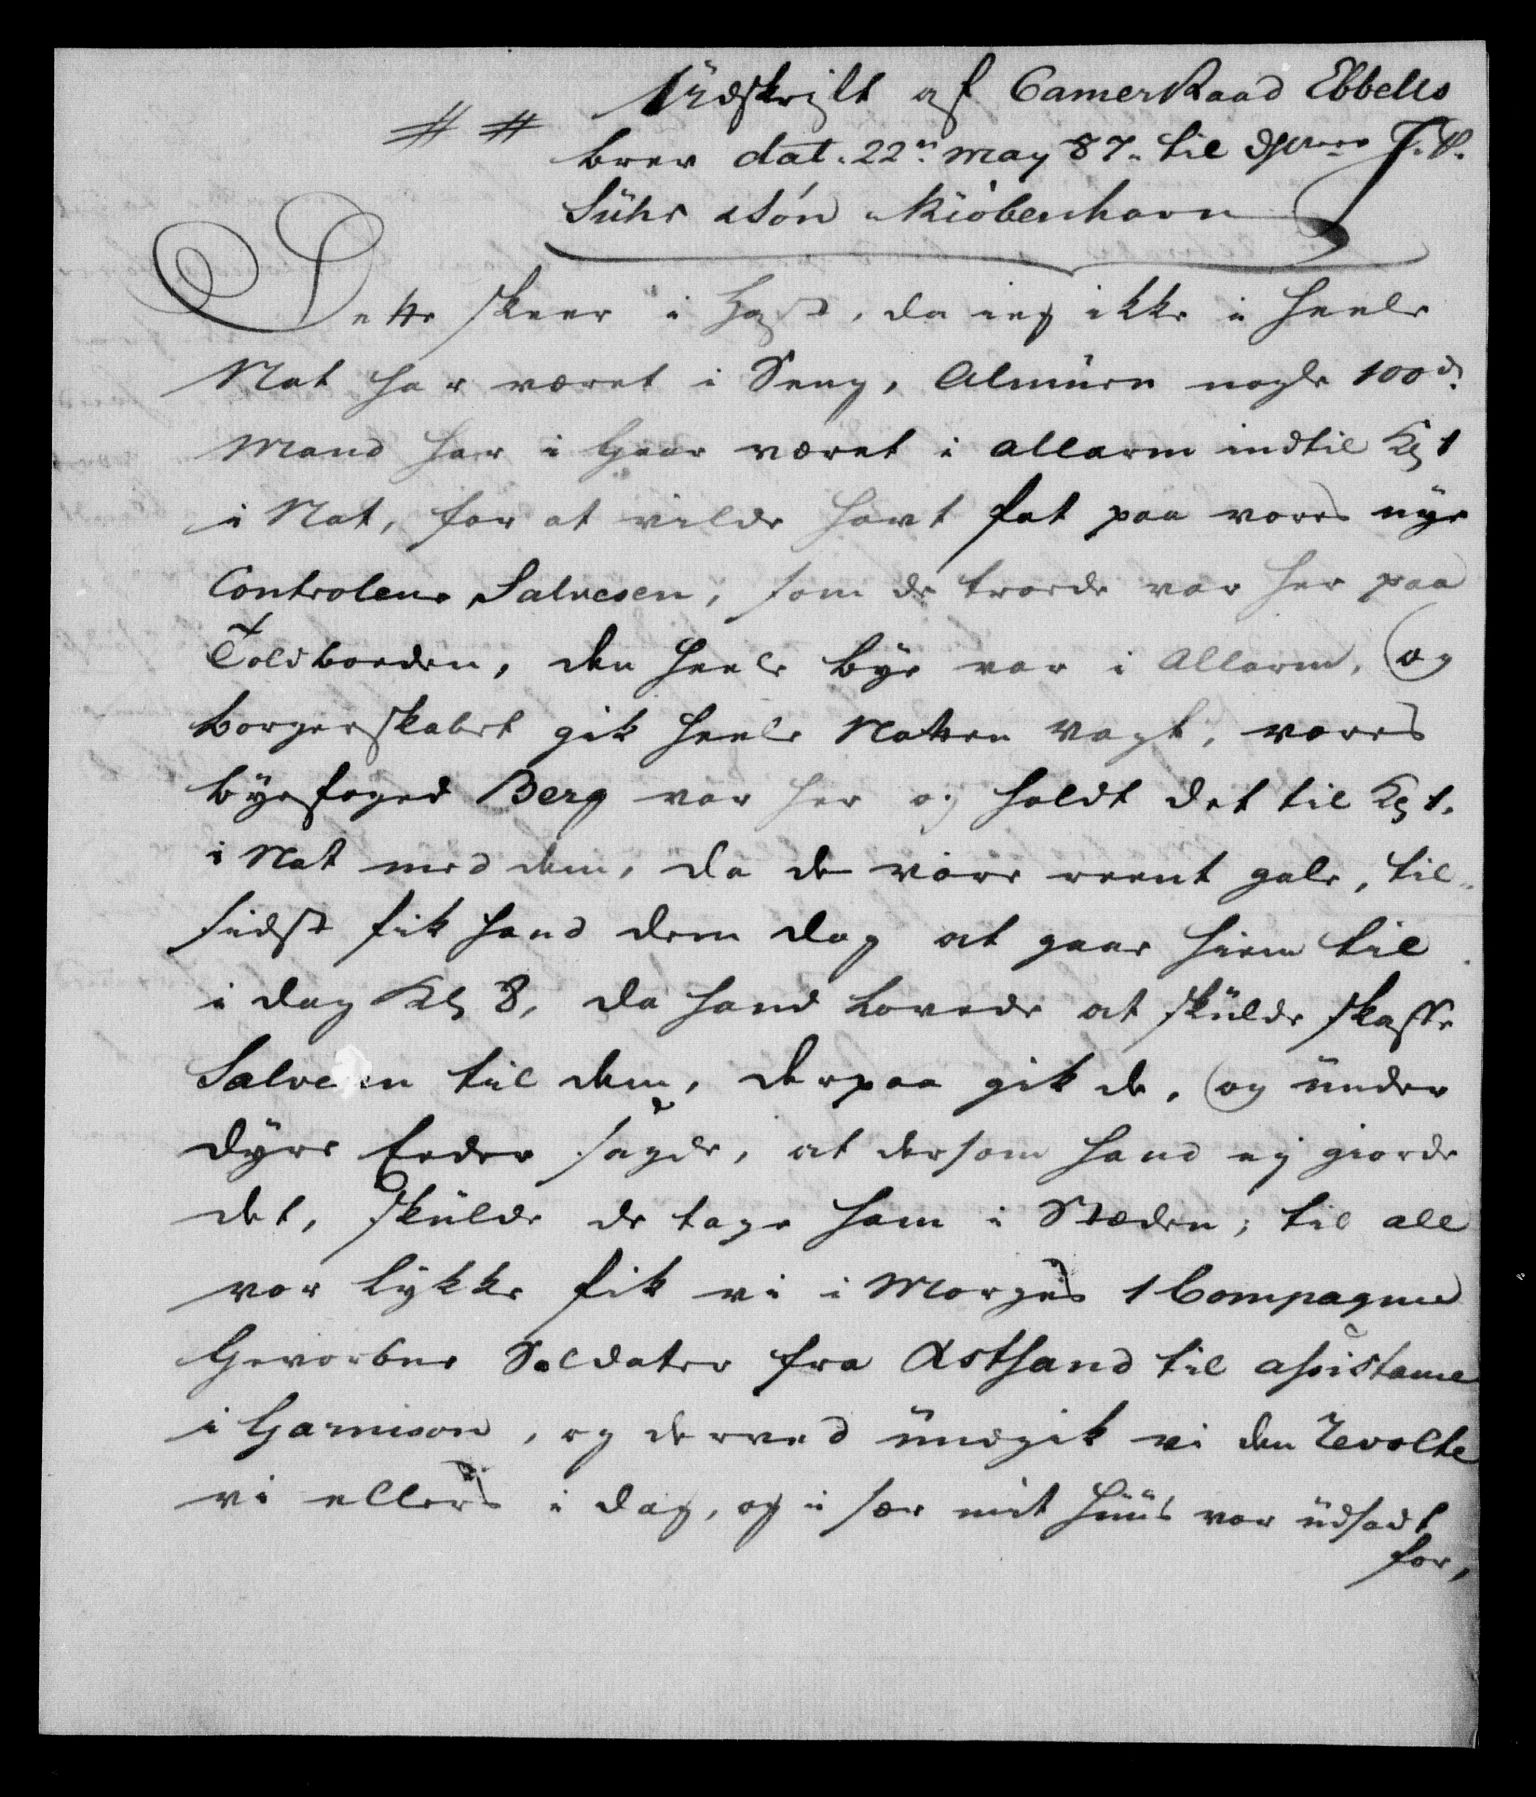 Udskrift af CamerRaad Ebbells
brev dat. 22n. may 87. til J. P.
Suhr & Søn Kiöbenhavn
Dette skeer i Hast, da ieg ikke i heele
Nat har været i Seng, Almuen nogle 100de.
Mand har i Gaar været i allarm indtil Kl 1
i Nat, for at vilde havt fat paa vores nye
Controleur Salvesen, som de troede var her paa
Toldboeden, den heele bye var i Allarm, og
borgerskabet gik heele Natten vagt, vores
byefoged Berg var her og holdt det til Kl 1.
i Nat med dem, da de vare reent gale, til
sidst fik hand dem dog at gaae hiem til
i dag Kl 8, da hand lovede at skulde skaffe
Salvesen til dem, derpaa gik de, og under
dyre Eeder sagde, at dersom hand ej giorde
det, skulde de tage ham i Stæden; til all
vor lykke fik vi i Morges 1 Compagnie
Gevorbne Soldater fra Østsand til assistance
i Garnison, og derved undgik vi den Revolte
vi ellers i dag, og i sær mit Huus var udsadt
for,